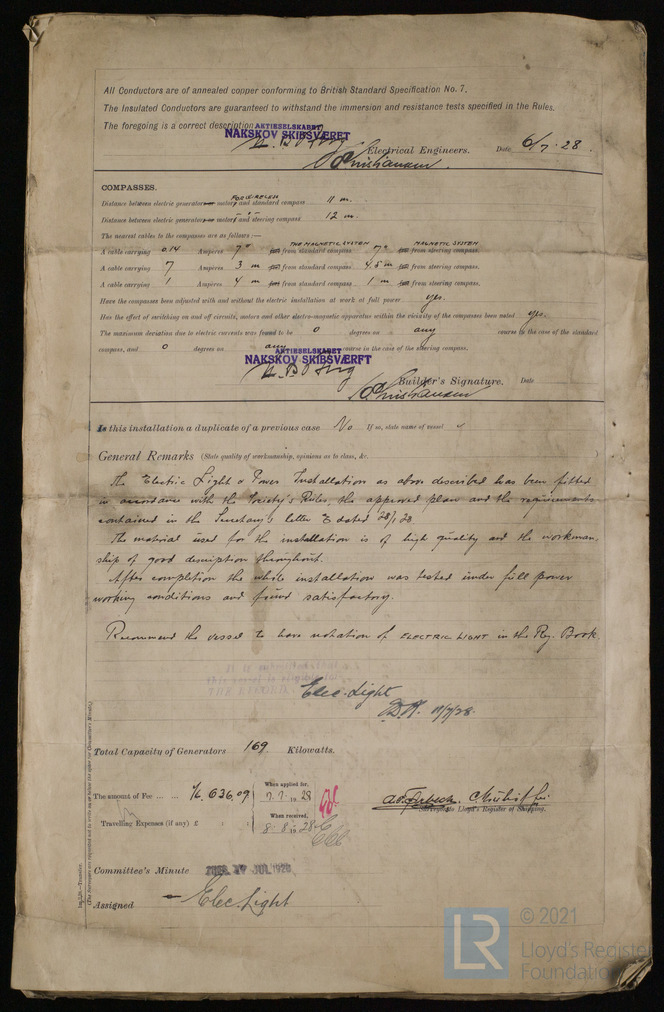 All Conductors are of annealed copper conforming to British Standard Specification No. 7.
The Insulated Conductors are guaranteed to withstand the immersion and resistance tests specified in the Rules.
The foregoing is a correct description
AKTIESELSKABET
NAKSKOV SKIBSVÆRFT
Electrical Engineers. Date 6/7·28.
COMPASSES.
FOR WIRELESS
Distance between electric generator or motor and standard compass 11 m.
Distance between electric generator or motor and steering compass 12 m.
The nearest cables to the compasses are as follows:—
THE MAGNETIC SYSTEM MAGNETIC SYSTEM
A cable carrying 0.14 Amperes 7" feet from standard compass 7" feet from steering compass.
A cable carrying 7 Amperes 3 m feet from standard compass 4.5 m feet from steering compass.
A cable carrying 1 Amperes 4 m feet from standard compass 1 m feet from steering compass.
Have the compasses been adjusted with and without the electric installation at work at full power yes.
Has the effect of switching on and off circuits, motors and other electro-magnetic apparatus within the vicinity of the compasses been noted yes.
The maximum deviation due to electric currents was found to be 0 degrees on any course in the case of the standard
compass, and 0 degrees on any course in the case of the steering compass.
AKTIESELSKABET
NAKSKOV SKIBSVÆRFT
Builder's Signature. Date
Is this installation a duplicate of a previous case No If so, state name of vessel
General Remarks (State quality of workmanship, opinions as to class, &c.
The Electric Light & Power Installation as above described has been fitted
in accordance with the Society's Rules, the approved plan and the requirements
contained in the Secretary's letter E dated 28/1 28.
The material used for the installation is of high quality and the workman-
ship of good description throughout.
After completion the whole installation was tested under full power
working conditions and found satisfactory.
Recommend the vessel to have notation of ELECTRIC LIGHT in the Reg. Book.
It is submitted that
this vessel is eligible for
THE RECORD.
Elec. Light
19/7/28
Total Capacity of Generators 169 Kilowatts.
The amount of Fee ... ... Kr. 636,09
When applied for,
7.7.1928
Travelling Expenses (if any) £ : :
When received,
8.8.1928
Surveyor to Lloyd's Register of Shipping.
Committee's Minute JUL 1928
Assigned Elec. Light
LR © 2021
Lloyd's Register
Foundation